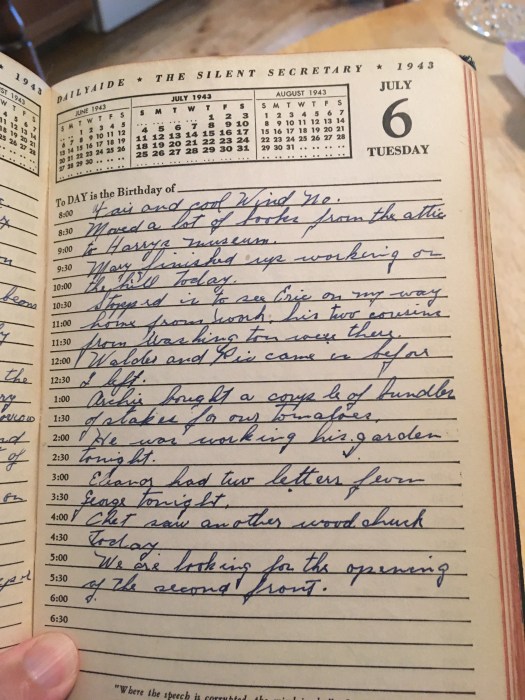 1943
DAILYAIDE * THE SILENT SECRETARY * 1943
JUNE 1943
S M T W T F S
1 2 3 4 5
6 7 8 9 10 11 12
13 14 15 16 17 18 19
20 21 22 23 24 25 26
27 28 29 30
JULY 1943
S M T W T F S
1 2 3
4 5 6 7 8 9 10
11 12 13 14 15 16 17
18 19 20 21 22 23 24
25 26 27 28 29 30 31
AUGUST 1943
S M T W T F S
1 2 3 4 5 6 7
8 9 10 11 12 13 14
15 16 17 18 19 20 21
22 23 24 25 26 27 28
29 30 31
JULY
6
TUESDAY
To DAY is the Birthday of
8:00 Fair and cool Wind No.
8:30 Moved a lot of books from the attic
9:00 to Harrys museum.
9:30 Mary finished up working on
10:00 the hill today.
10:30 Stopped in to see Eric on my way
11:00 home from work, his two cousins
11:30 from Washington were there.
12:00 Walder and came in before
12:30 I left.
1:00 Archie bought a couple of bundles
1:30 of stakes for our tomatoes.
2:00 He was working his garden
2:30 tonight.
3:00 Eleanor had two letters from
3:30 George tonight.
4:00 Chet saw another wood chuck
4:30 Today
5:00 We are looking for the opening
5:30 of the second front.
6:00
6:30
"Where the speech is corrupted, the mind is